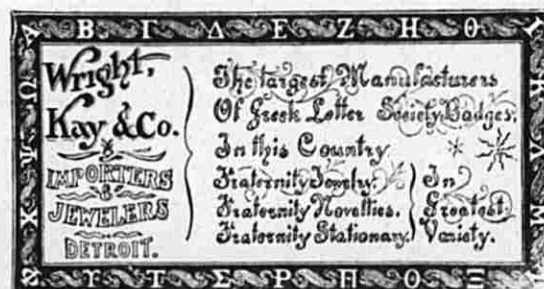 Α Β Γ Δ Ε Ζ Η Θ Ι
Κ Λ Μ Ν
Ξ Ο Π Ρ Σ Τ Υ Φ
Χ Ψ Ω
Wright,
Kay & Co.
IMPORTERS
&
JEWELERS
DETROIT.
The largest Manufacturers
Of Greek Letter Society Badges.
In this Country
Fraternity Jewelry.
Fraternity Novelties.
Fraternity Stationary.
In
Greatest
Variety.